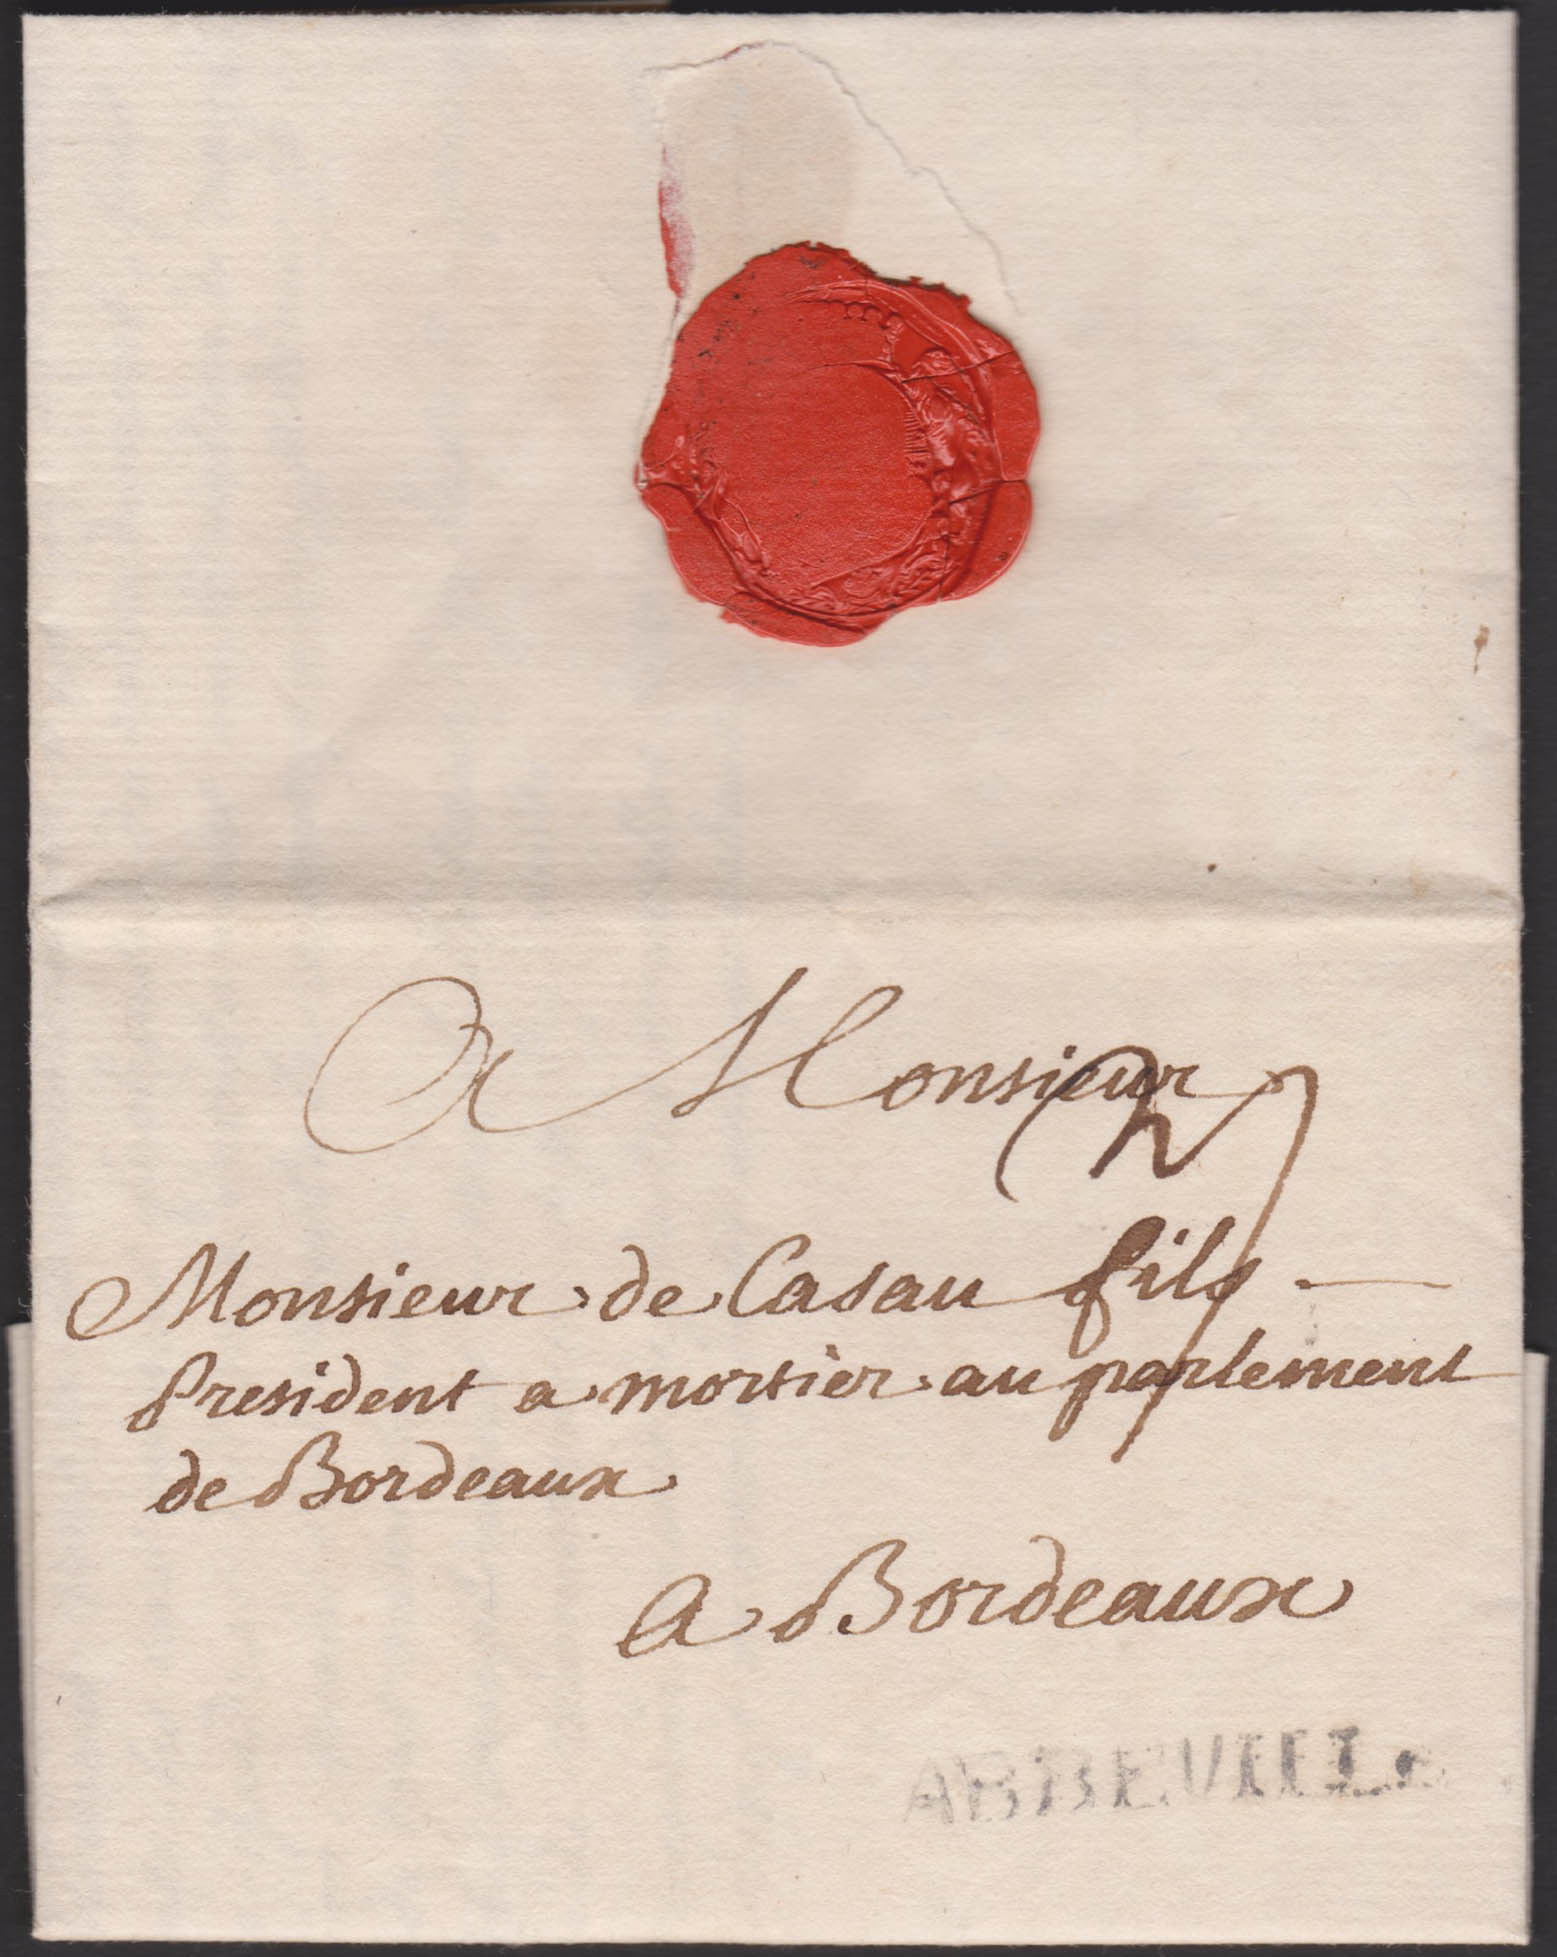 A Monsieur
Monsieur de Casau fils
President a mortier au parlement
de Bordeaux
A Bordeaux
ABBEVILLe